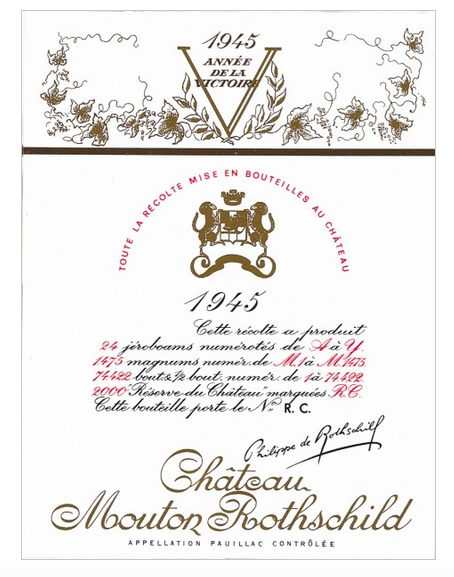 1945
ANNÉE
DE LA
VICTOIRE
V
TOUTE LA RÉCOLTE MISE EN BOUTEILLES AU CHÂTEAU
1945
Cette récolte a produit
24 jéroboams numérotés de A à Y.
1475 magnums numér. de M.1 à M.1475.
74422 bout. & ½ bout. numér. de 1 à 74422.
2000 "Réserve du Château" marquées R.C.
Cette bouteille porte le No R.C.
Philippe de Rothschild
Château
Mouton Rothschild
APPELLATION PAUILLAC CONTRÔLÉE